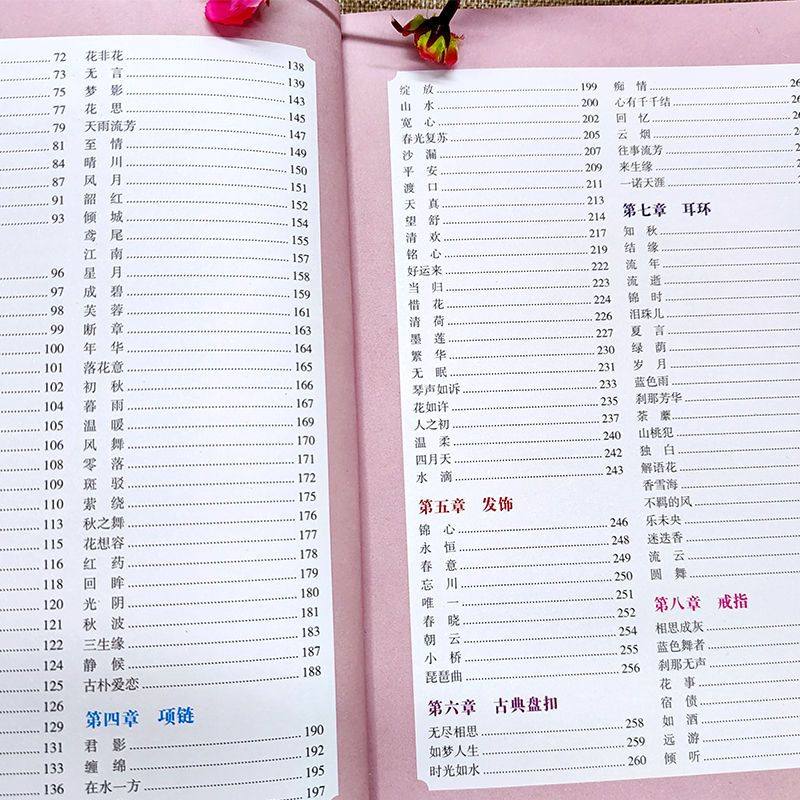 72
73
75
77
79
81
84
87
91
93
96
97
98
99
100
101
102
104
105
106
108
109
110
113
115
116
118
120
121
122
124
125
126
129
131
133
136
花非花 138
无言 139
梦影 143
花思 145
天雨流芳 147
至情 149
晴川 150
风月 151
韶红 152
倾城 154
鸢尾 155
江南 157
星月 158
成碧 159
芙蓉 161
断章 163
年华 164
落花意 165
初秋 166
暮雨 167
温暖 169
风舞 170
零落 171
斑驳 172
萦绕 175
秋之舞 176
花想容 177
红药 178
回眸 179
光阴 180
秋波 181
三生缘 183
静候 187
古朴爱恋 188
第四章 项链
君影 190
缠绵 192
在水一方 195
197
绽放 199
山水 200
宽心 202
春光复苏 205
沙漏 207
平安 209
渡口 211
天真 213
望舒 214
清欢 217
铭心 219
好运来 222
当归 223
惜花 224
清荷 226
墨莲 227
繁华 230
无眠 231
琴声如诉 233
花如许 235
人之初 237
温柔 240
四月天 242
水滴 243
第五章 发饰
锦心 246
永恒 248
春意 249
忘川 250
唯一 251
春晓 252
朝云 254
小桥 255
琵琶曲 256
第六章 古典盘扣
无尽相思 258
如梦人生 259
时光如水 260
痴情
心有千千结
回忆
云烟
往事流芳
来生缘
一诺天涯
第七章 耳环
知秋
结缘
流年
流逝
锦时
泪珠儿
夏言
绿荫
岁月
蓝色雨
刹那芳华
荼蘼
山桃犯
独白
解语花
香雪海
不羁的风
乐未央
迷迭香
流云
圆舞
第八章 戒指
相思成灰
蓝色舞者
刹那无声
花事
宿债
如酒
远游
倾听